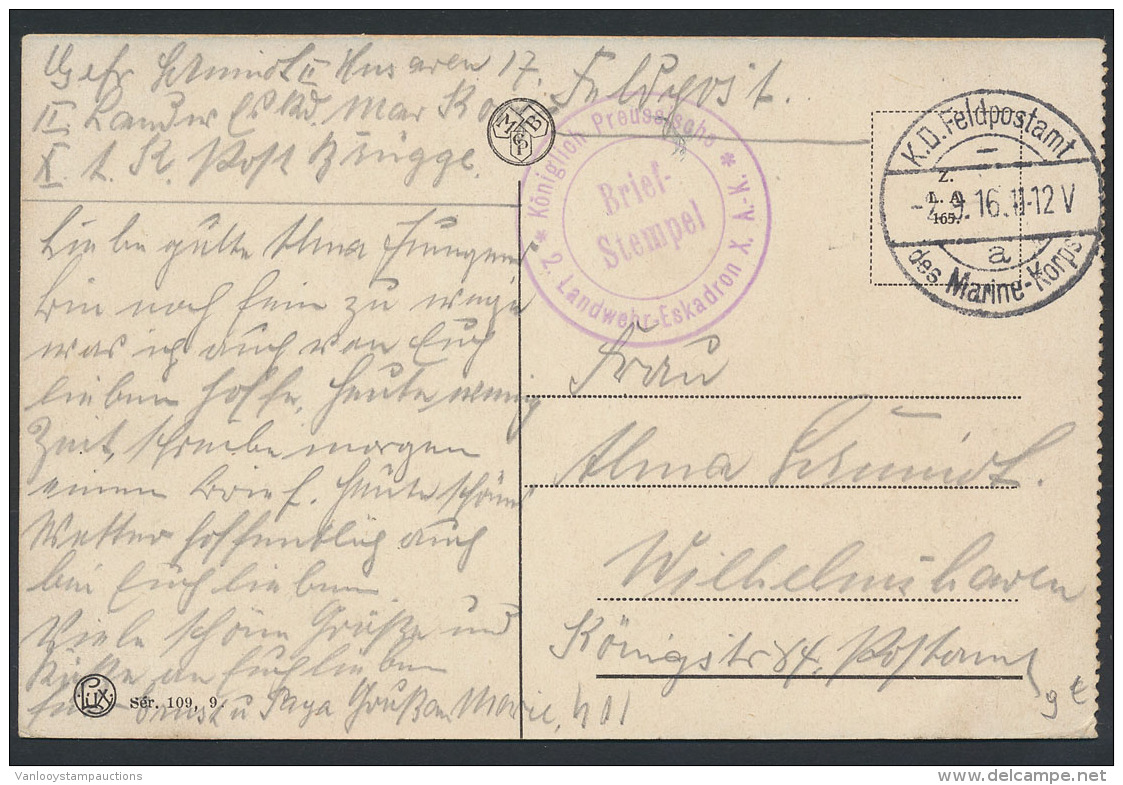 Gefr Schmidt II Husaren 17. Feldpost.
II Landw Eskd. Mar Kor
X A. K. Post Brügge.
MB
Königlich Preussische
Brief-
Stempel
2. Landwehr-Eskadron X. A.-K.
K.D. Feldpostamt
Z.
L. A
165.
-2.9.16.11-12 V
a
des Marine-Korps
Liebe gute Alma Jungens
bin noch fein zu wege
was ich auch von Euch
lieben hoffe, heute wenig
Zeit, schreibe morgen
einen Brief. Heute schönes
Wetter hoffentlich auch
bei Euch lieben.
Viele schöne Grüße und
Küsse an Euch lieben
Papa Gruß an Marie,
Frau
Alma Schmidt.
Wilhelmshaven
Königstr 84, Postamt
Lux
Sér. 109, 9.
9 €
Vanlooystampauctions
www.delcampe.net